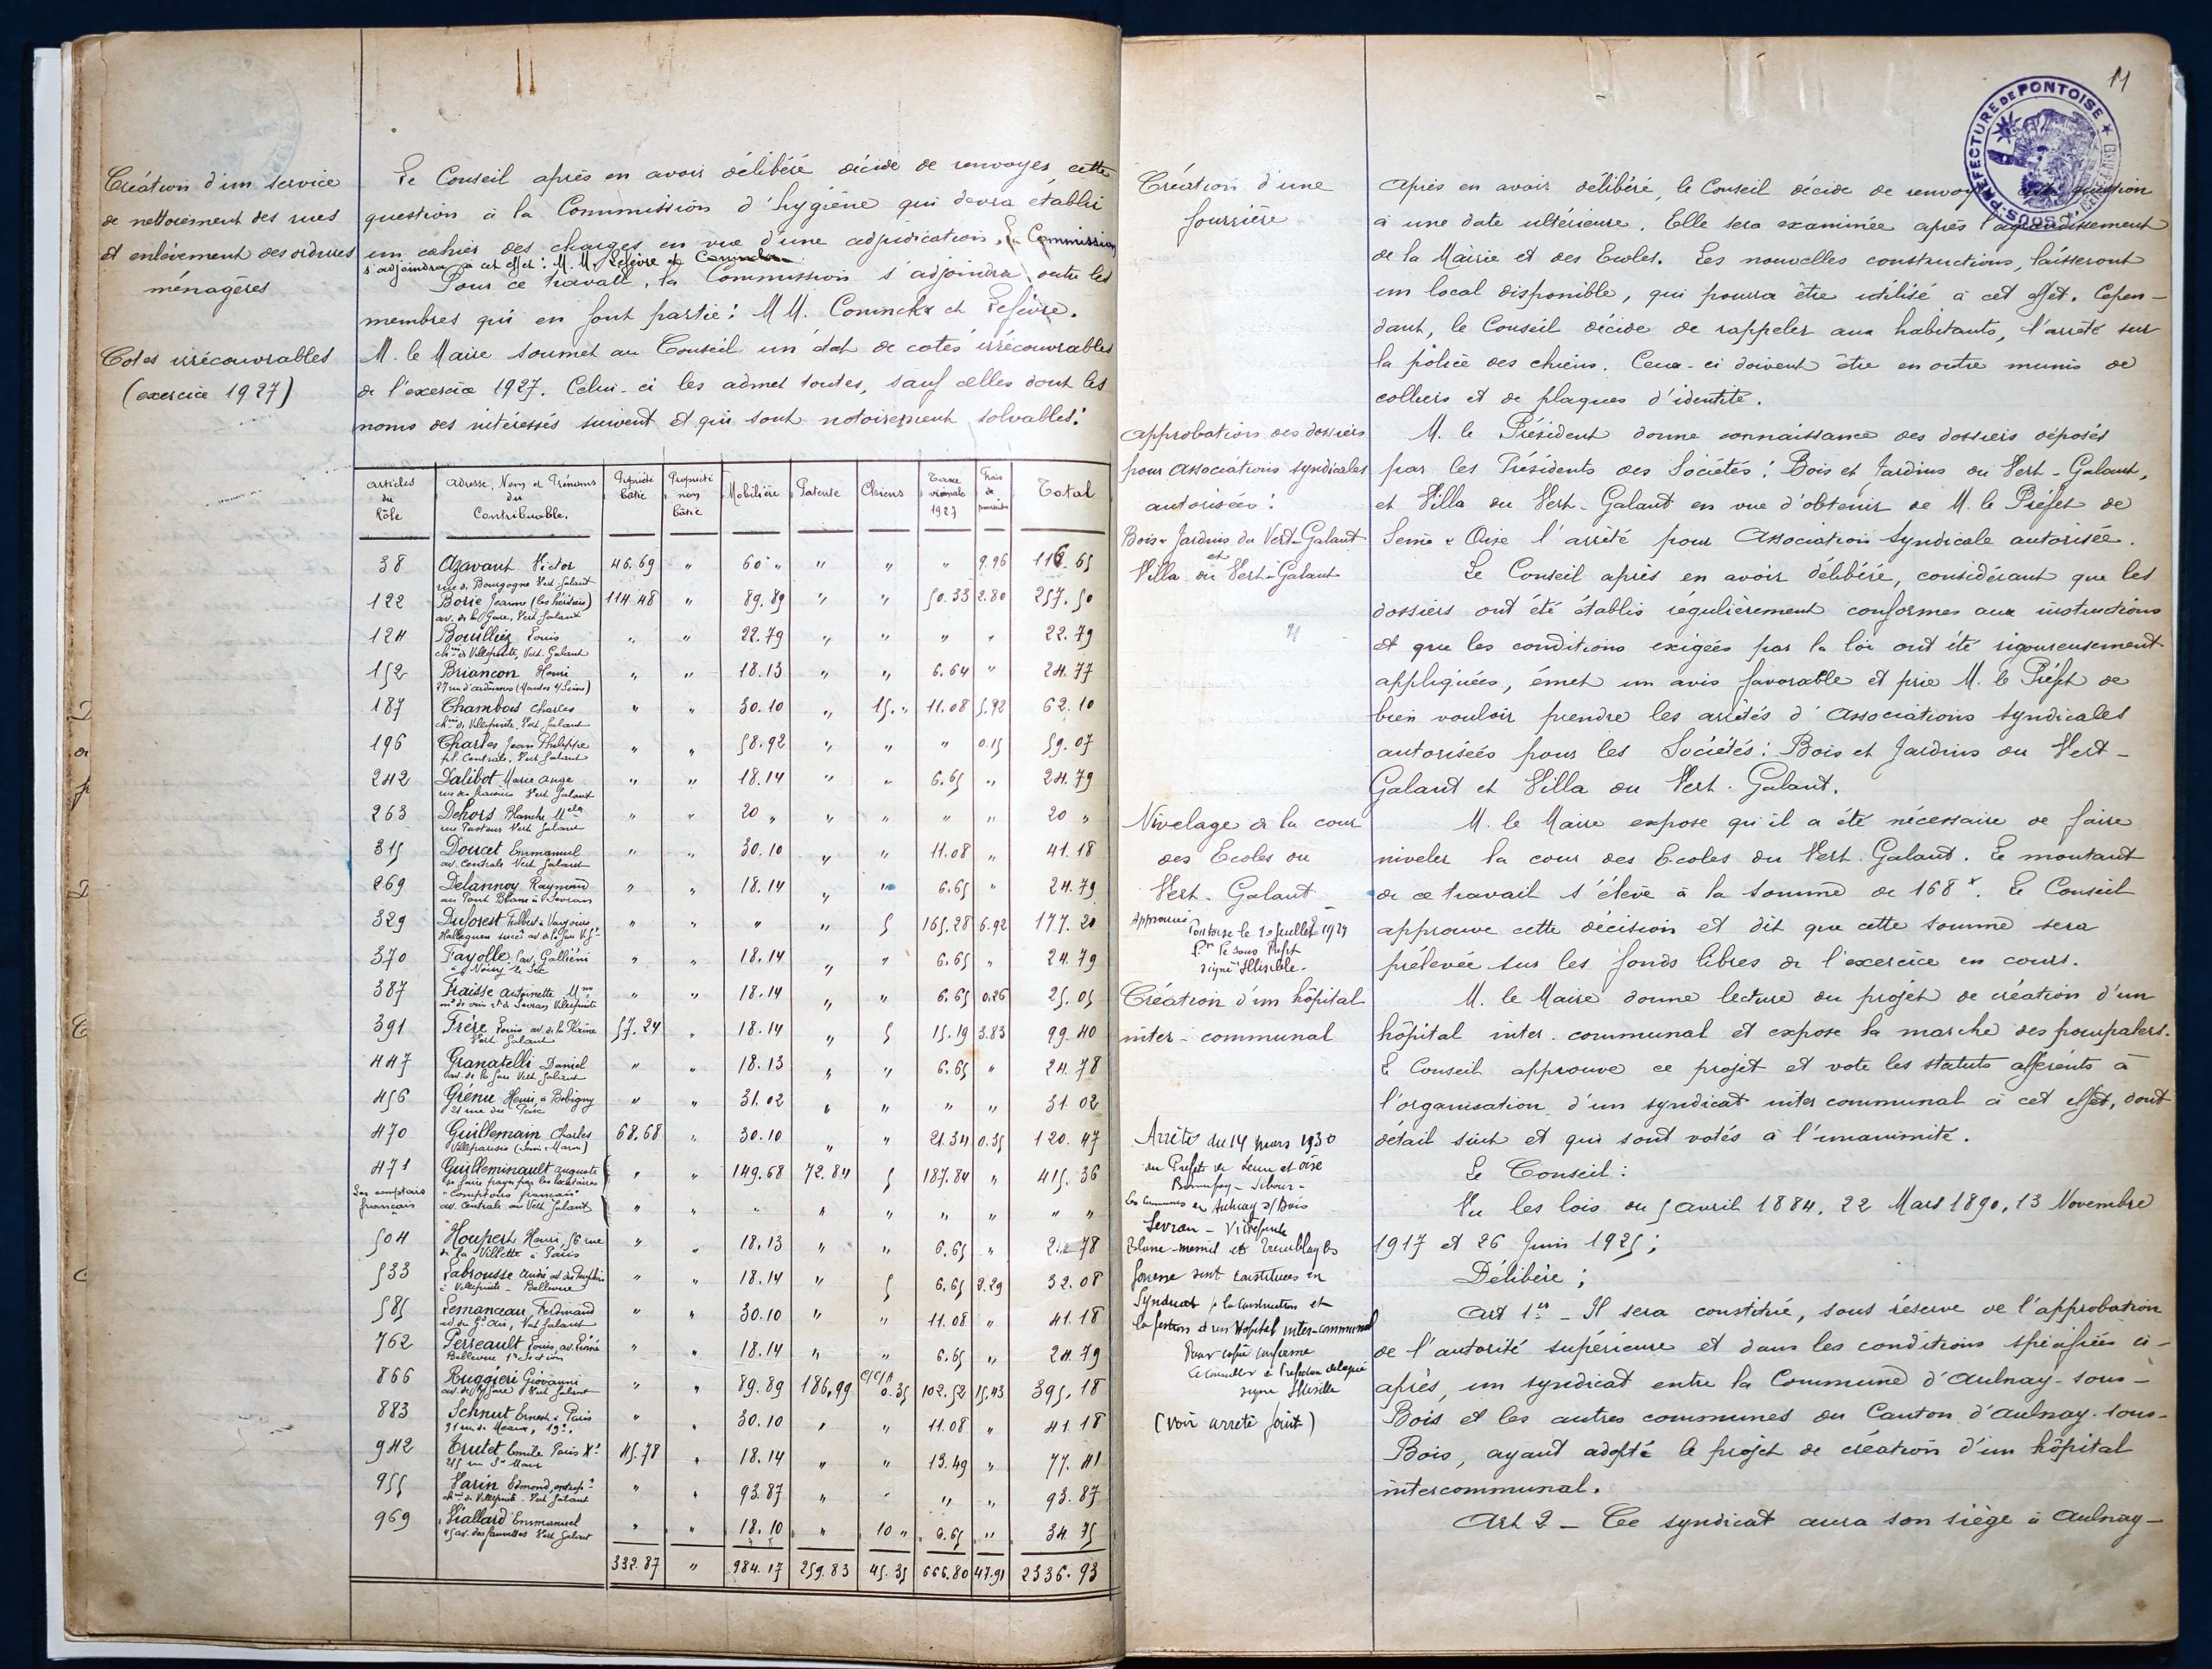 Création d'un service
de nettoiement des rues
et enlèvement des ordures
ménagères
Le Conseil après en avoir délibéré décide de renvoyer cette
question à la Commission d'hygiène qui devra établi
un cahier des charges en vue d'une adjudication. La Commission
s'adjoindra à cet effet : M. M. Lefèvre et Coninckx
Pour ce travail, la Commission s'adjoindra outre les
membres qui en font partie : M M. Coninckx et Lefèvre.
Cotes irrécouvrables
(exercice 1927)
M. le Maire soumet au Conseil un état de cotes irrécouvrables
de l'exercice 1927. Celui-ci les admet toutes, sauf celles dont les
noms des intéressés suivent et qui sont notoirement solvables :
articles du Rôle | adresse, Nom et Prénoms du Contribuable. | Propriété bâtie | Propriété non bâtie | Mobilière | Patente | Chiens | Taxe vicinale 1927 | Frais de poursuites | Total
38 Azavant Victor 46.69 " 60 " " " " 9.96 116.65
rue de Bourgogne Vert Galant
122 Borie Jeanne (les héritiers) 114.48 " 89.89 " " 50.33 2.80 257.50
av. de la Gare, Vert Galant
124 Bouilliez Louis " " 22.79 " " " " 22.79
ch.in de Villepinte, Vert Galant
152 Briancon Henri " " 18.13 " " 6.64 " 24.77
187 Chambos Charles " " 30.10 " 15." 11.08 5.92 62.10
ch.in de Villepinte, Vert Galant
196 Charles Jean Philippe " " 58.92 " " " 0.15 59.07
Vert Galant
242 Dalibot Marie ange " " 18.14 " " 6.65 " 24.79
Vert Galant
263 Dehors Blanche Melle " " 20 " " " " " 20 "
rue Pasteur Vert Galant
315 Doucet Emmanuel " " 30.10 " " 11.08 " 41.18
av. Centrale Vert Galant
269 Delannoy Raymond " " 18.14 " " 6.65 " 24.79
au Pont Blanc à Sevran
329 Duforest " " " " 5 165.28 6.92 177.20
370 Fayolle, av. Galliéni " " 18.14 " " 6.65 " 24.79
à Noisy le Sec
387 Fraisse Antoinette Mme " " 18.14 " " 6.65 0.26 25.05
391 Frère Louis, av. de la Reine 57.24 " 18.14 " 5 15.19 3.83 99.40
Vert Galant
447 Granatelli Daniel " " 18.13 " " 6.65 " 24.78
av. de la Gare Vert Galant
456 Grénu Henri, à Bobigny " " 31.02 " " " " 31.02
21 rue du Parc
470 Guillemain Charles 68.68 " 30.10 " " 21.34 0.35 120.47
Villeparisis (Seine & Marne)
471 Guilleminault auguste " " 149.68 72.84 5 187.84 " 415.36
à faire payer par les locataires
Les comptoirs français "Comptoirs français"
av. Centrale au Vert Galant " " " " " " " " "
504 Houpert Henri, 56 rue " " 18.13 " " 6.65 " 24.78
de la Villette à Paris
533 Labrousse André " " 18.14 " 5 6.65 2.29 32.08
à Villepinte - Bellevue
585 Lemanceau Ferdinand " " 30.10 " " 11.08 " 41.18
Vert Galant
762 Perreault Louis, av. " " 18.14 " " 6.65 " 24.79
Bellevue 1re Section
866 Ruggieri Giovanni " " 89.89 186.99 0.35 102.52 15.43 395.18
av. de la Gare Vert Galant
883 Schnut Ernest à Paris " " 30.10 " " 11.08 " 41.18
91 rue de Meaux, 19e.
942 Trutet Emile Paris 45.78 " 18.14 " " 13.49 " 77.41
955 Varin Edmond, entrep. " " 93.87 " " " " 93.87
ch.in de Villepinte - Vert Galant
969 Viallard Emmanuel " " 18.10 " 10 " 6.65 " 34.75
45 av. des fauvettes Vert Galant
332.87 " 984.17 259.83 45.35 666.80 47.91 2336.93
11
SOUS-PRÉFECTURE DE PONTOISE
Création d'une
fourrière
Après en avoir délibéré, le Conseil décide de renvoyer cette question
à une date ultérieure. Elle sera examinée après l'agrandissement
de la Mairie et des Ecoles. Les nouvelles constructions, laisseront
un local disponible, qui pourra être utilisé à cet effet. Cepen-
dant, le Conseil décide de rappeler aux habitants, l'arrêté sur
la police des chiens. Ceux-ci doivent être en outre munis de
colliers et de plaques d'identité.
Approbation des dossiers
pour Associations syndicales
autorisées :
Bois & Jardins du Vert-Galant
et
Villa du Vert-Galant
M. le Président donne connaissance des dossiers déposés
par les Présidents des Sociétés : Bois et Jardins du Vert-Galant,
et Villa du Vert-Galant en vue d'obtenir de M. le Préfet de
Seine & Oise l'arrêté pour Association Syndicale autorisée.
Le Conseil après en avoir délibéré, considérant que les
dossiers ont été établis régulièrement conformes aux instructions
et que les conditions exigées par la loi ont été rigoureusement
appliquées, émet un avis favorable et prie M. le Préfet de
bien vouloir prendre les arrêtés d'Associations syndicales
autorisées pour les Sociétés : Bois et Jardins du Vert-
Galant et Villa du Vert-Galant.
Nivelage de la cour
des Ecoles du
Vert-Galant
Approuvé
Pontoise le 10 Juillet 1929
Pr le Sous Préfet
signé
M. le Maire expose qu'il a été nécessaire de faire
niveler la cour des Ecoles du Vert-Galant. Le montant
de ce travail s'élève à la somme de 168 f. Le Conseil
approuve cette décision et dit que cette somme sera
prélevée sur les fonds libres de l'exercice en cours.
Création d'un hôpital
inter-communal
M. le Maire donne lecture du projet de création d'un
hôpital inter-communal et expose la marche des pourpalers.
Le Conseil approuve ce projet et vote les statuts afférents à
l'organisation d'un syndicat inter communal à cet effet, dont
détail suit et qui sont votés à l'unanimité.
Arrêté du 14 mars 1930
du Préfet de Seine et Oise
Les Communes de Aulnay s/Bois
Sevran - Villepinte
Blanc-mesnil et Tremblay les
Gonesse sont constituées en
Syndicat p. la Construction et
la gestion d'un Hôpital inter-communal
Pour copie conforme
Le Conseiller de Préfecture délégué
signé
(voir arrêté joint)
Le Conseil :
Vu les lois du 5 avril 1884, 22 Mars 1890, 13 Novembre
1917 et 26 Juin 1925 ;
Délibère ;
Art 1er - Il sera constitué, sous réserve de l'approbation
de l'autorité supérieure et dans les conditions spécifiées ci-
après, un syndicat entre la Commune d'Aulnay-sous-
Bois et les autres communes du Canton d'Aulnay-sous-
Bois, ayant adopté le projet de création d'un hôpital
intercommunal.
Art 2 - Ce syndicat aura son siège à Aulnay-